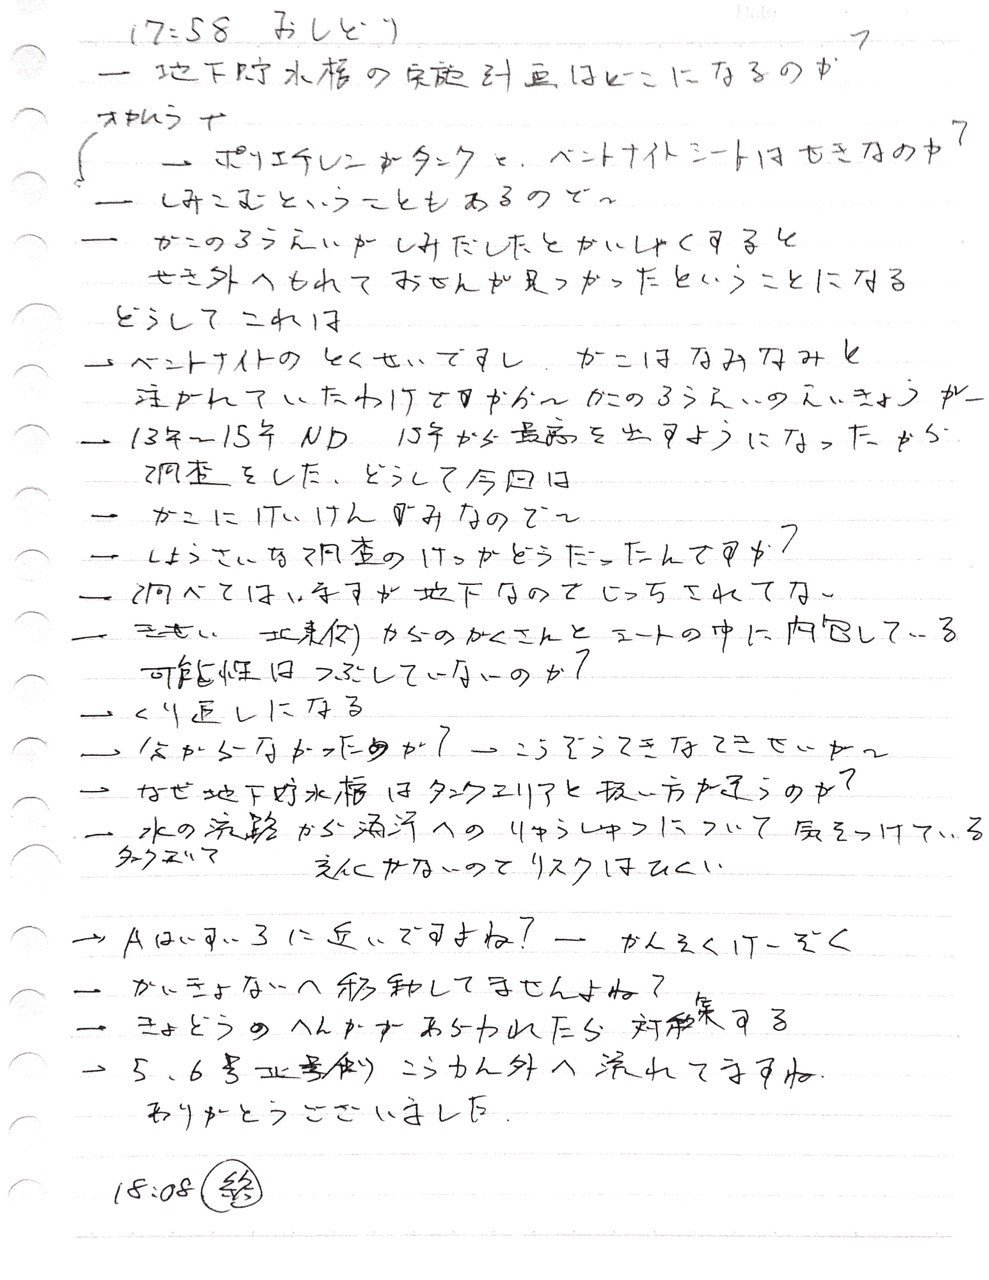 17:58 おしどり
ー 地下貯水槽の実施計画はどこになるのか?
→ ポリエチレンがタンクと、ベントナイトシートはせきなのか?
ー しみこむということもあるので〜
ー かこのろうえいがしみだしたとかいしゃくすると
せき外へもれておせんが見つかったということになる
どうしてこれは
→ ベントナイトのとくせいですし、かこはなみなみと
注がれていたわけですから〜かこのろうえいのえいきょうがー
→ 13年〜15年 ND 15年から最高を出すようになったから
調査をした、どうして今回は
ー かこにけいけんずみなので〜
ー しょうさいな調査のけっかどうだったんですか?
→ 調べてはいますが地下なのでじっちされてない
→ 北東側からのかくさんとシートの中に内包している
可能性はつぶしていないのか?
→ くり返しになる
→ 分からなかったのか? → こうぞうてきなてきせいか〜
→ なぜ地下貯水槽はタンクエリアと扱い方が違うのか?
→ 水の流路から海洋へのりゅうしゅつについて気をつけている
タンクエリア
ないのでリスクはひくい
→ Aはいすいろに近いですよね? ー かんそくけーぞく
ー かいきょないへ移動してませんよね?
→ きょどうのへんかがあらわれたら対策する
→ 5、6号北側 こうわん外へ流れてますね。
ありがとうございました。
18:08 終